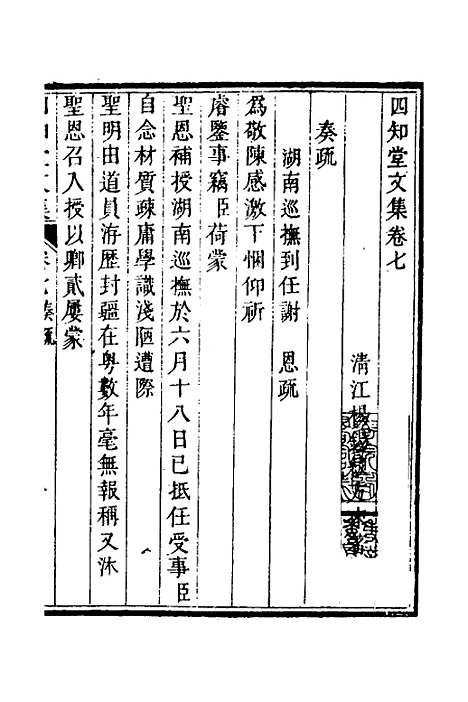 四知堂文集卷七
清江楊
奏疏
湖南巡撫到任謝　恩疏
為敬陳感激下悃仰祈
睿鑒事竊臣荷蒙
聖恩補授湖南巡撫於六月十八日已抵任受事臣
自念材質疎庸學識淺陋遭際
聖明由道員洊歷封疆在粵數年毫無報稱又沐
聖恩召入授以卿貳屢蒙